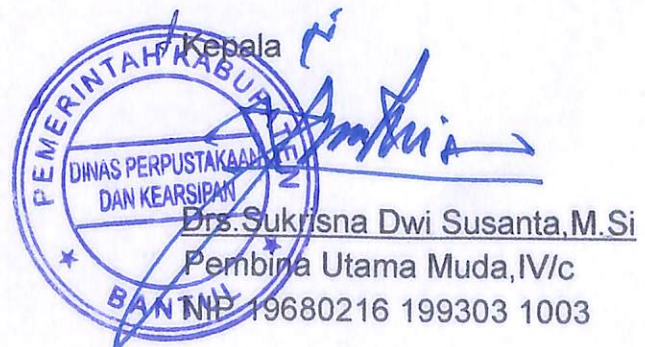 Kepala
PEMERINTAH KABUPATEN
DINAS PERPUSTAKAAN
DAN KEARSIPAN
BANTUL
Drs.Sukrisna Dwi Susanta,M.Si
Pembina Utama Muda,IV/c
NIP 19680216 199303 1003